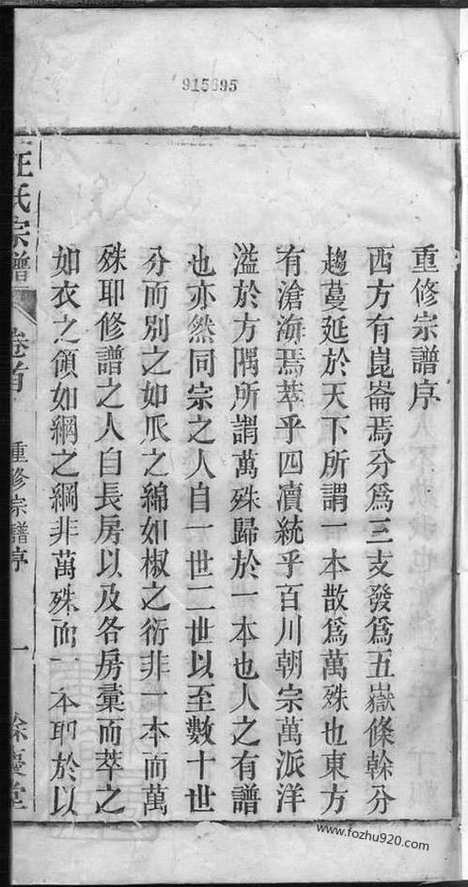 915695
重修宗譜序
西方有崑崙焉分爲三支發爲五嶽條榦分
趨蔓延於天下所謂一本散爲萬殊也東方
有滄海焉萃乎四瀆統乎百川朝宗萬派洋
溢於方隅所謂萬殊歸於一本也人之有譜
也亦然同宗之人自一世二世以至數十世
分而別之如瓜之綿如椒之衍非一本而萬
殊耶修譜之人自長房以及各房彙而萃之
如衣之領如綱之綱非萬殊而一本耶於以
汪氏宗譜
卷首
重修宗譜序
一
餘慶堂
www.fozhu920.com